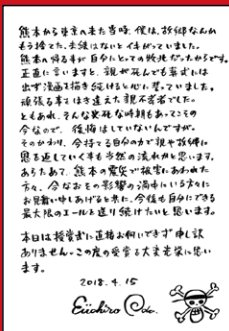 熊本から東京の来た当時、僕は、故郷なんか
もう捨てた、未練はないとイキがっていました。
熊本の帰る事が自分にとっての敗北だったからです。
正直に言いますと、親が死んでも葬式には
出ず漫画を描き続けると心に誓っていました。
頑張る事とはき違えた親不孝者でした。
ともあれ、そんな必死な時期もあってこその
今なので、後悔はしていないんですが、
そのかわり、今持てる自分の力で親や故郷に
恩を返していく事も当然の流れかと思います。
あらためて、熊本の震災で被害にあわれた
方々、今なおその影響の渦中にいる方々に
お見舞い申しあげると共に、今後も自分にできる
最大限のエールを送り続けたいと思います。
本日は授賞式に直接お伺いできず申し訳
ありません。この度の受賞も大変光栄に思い
ます。
2018.4.15
Eiichiro Oda.